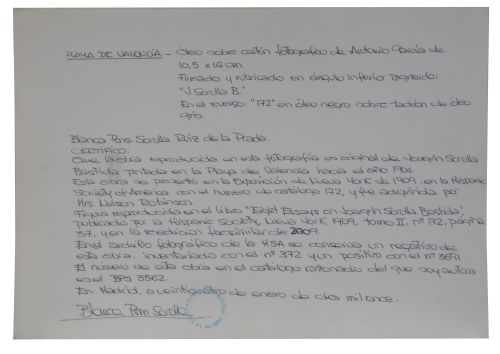 PLAYA DE VALENCIA - Óleo sobre cartón fotográfico de Antonio García de
10,5 x 16 cm.
Firmado y rubricado en ángulo inferior izquierdo:
"J Sorolla B."
En el reverso: "172" en óleo negro sobre tachón de óleo
gris.
Blanca Pons-Sorolla Ruiz de la Prada.
CERTIFICO:
Que la obra reproducida en esta fotografía es original de Joaquín Sorolla
Bastida pintada en la Playa de Valencia hacia el año 1904.
Esta obra se presentó en la Exposición de Nueva York de 1909, en la Hispanic
Society of America con el número de catálogo 172, y fue adquirida por
Mrs. Nelson Robinson.
Figura reproducida en el libro "Eight Essays on Joaquín Sorolla Bastida",
publicado por la Hispanic Society, Nueva York, 1909, tomo II, nº 172, página
37, y en la reedición facsimilar de 2009.
En el archivo fotográfico de la HSA se conserva un negativo de
esta obra inventariado con el nº 372 y un positivo con el nº 3691.
El número de esta obra en el catálogo razonado del que soy autora
es el BPS 3562.
En Madrid, a veinticuatro de enero de dos mil once.
Blanca Pons Sorolla